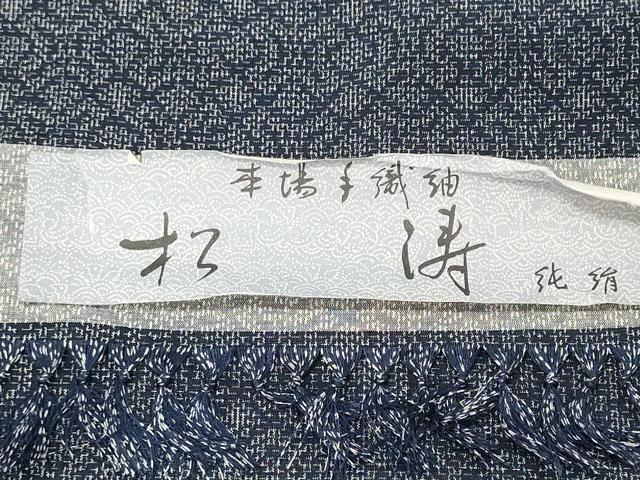 本場手織紬
松涛
純絹